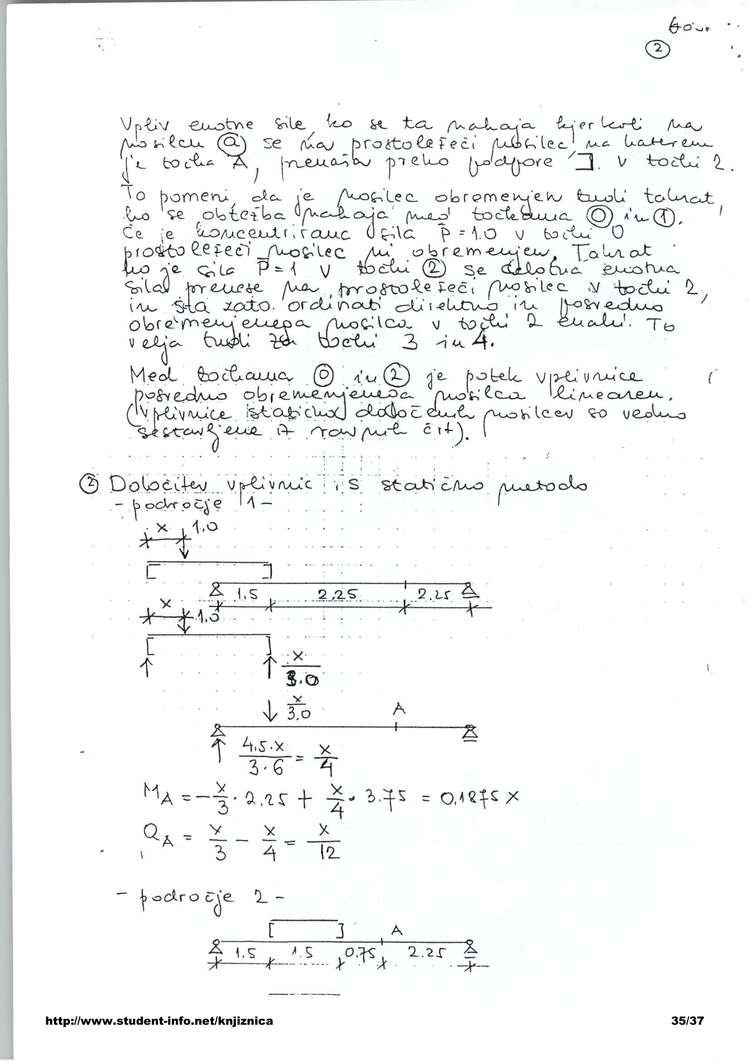 2
Vpliv enotne sile, ko se ta nahaja kjerkoli na
nosilcu (a) se na prostoležeči nosilec na katerem
je točka A, prenaša preko podpore ]. v točki 2.
To pomeni, da je nosilec obremenjen tudi takrat,
ko se obtežba nahaja med točkama (0) in (1).
Če je koncentrirana sila P=1.0 v točki 0
prostoležeči nosilec ni obremenjen. Takrat
ko je sila P=1 v točki (2) se celotna enotna
sila prenese na prostoležeči nosilec v točki 2,
in sta zato ordinati direktno in posredno
obremenjenega nosilca v točki 2 enaki. To
velja tudi za točki 3 in 4.
Med točkama (0) in (2) je potek vplivnice
posredno obremenjenega nosilca linearen.
(Vplivnice statično določenih nosilcev so vedno
sestavljene iz ravnih črt).
(2) Določitev vplivnic s statično metodo
- področje 1 -
x 1.0
1.5 2.25 2.25
x 1.0
x/3.0
x/3.0 A
4.5·x/3·6 = x/4
MA = -x/3 · 2.25 + x/4 · 3.75 = 0.1875 x
QA = x/3 - x/4 = x/12
- področje 2 -
[ ] A
1.5 1.5 0.75 2.25
http://www.student-info.net/knjiznica 35/37